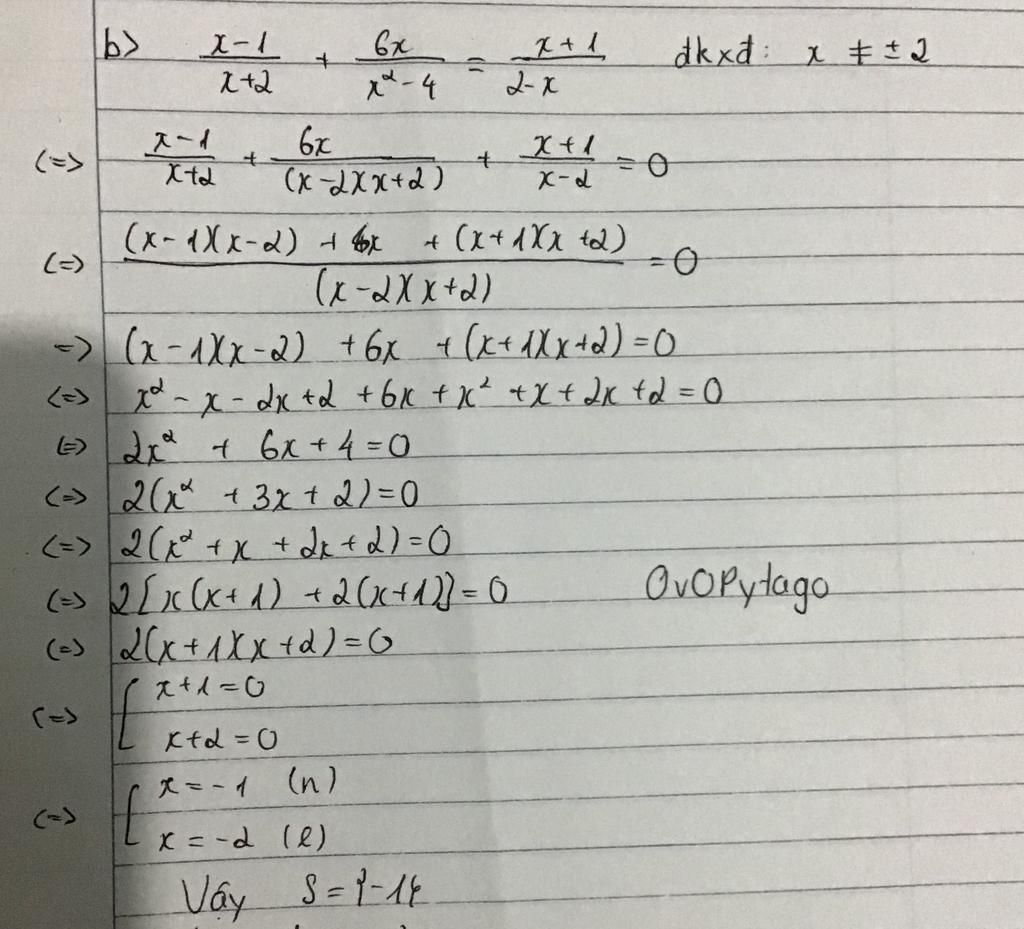 b> x-1/x+2 + 6x/x²-4 = x+1/2-x đkxđ: x ≠ ±2
<=> x-1/x+2 + 6x/(x-2)(x+2) + x+1/x-2 = 0
<=> (x-1)(x-2) + 6x + (x+1)(x+2)/(x-2)(x+2) = 0
=> (x-1)(x-2) + 6x + (x+1)(x+2) = 0
<=> x² - x - 2x + 2 + 6x + x² + x + 2x + 2 = 0
<=> 2x² + 6x + 4 = 0
<=> 2(x² + 3x + 2) = 0
<=> 2(x² + x + 2x + 2) = 0
<=> 2[x(x+1) + 2(x+1)] = 0 OvOPytago
<=> 2(x+1)(x+2) = 0
<=> [ x+1 = 0
x+2 = 0
<=> [ x = -1 (n)
x = -2 (l)
Vậy S = {-1}